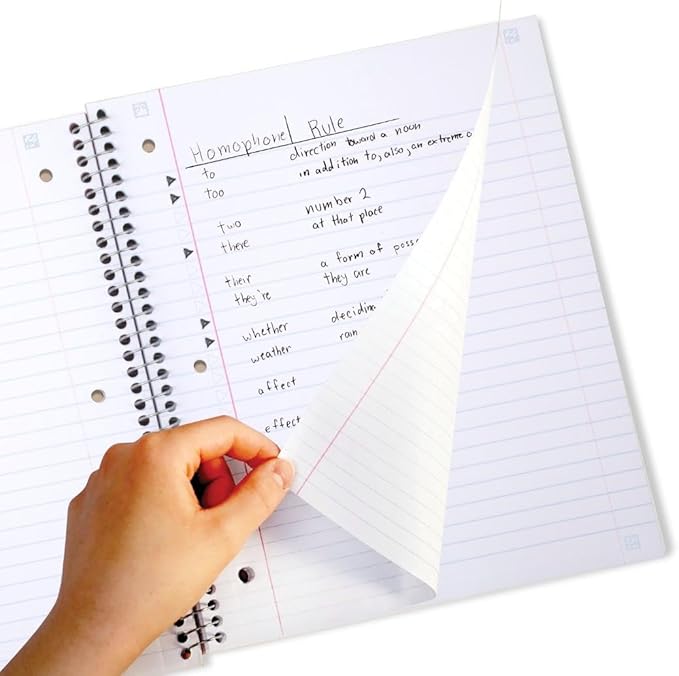 Homophone| Rule
to direction toward a noun
too in addition to, also, an extreme
two number 2
there at that place
their a form of
they're they are
whether deciding
weather rain
affect
effect